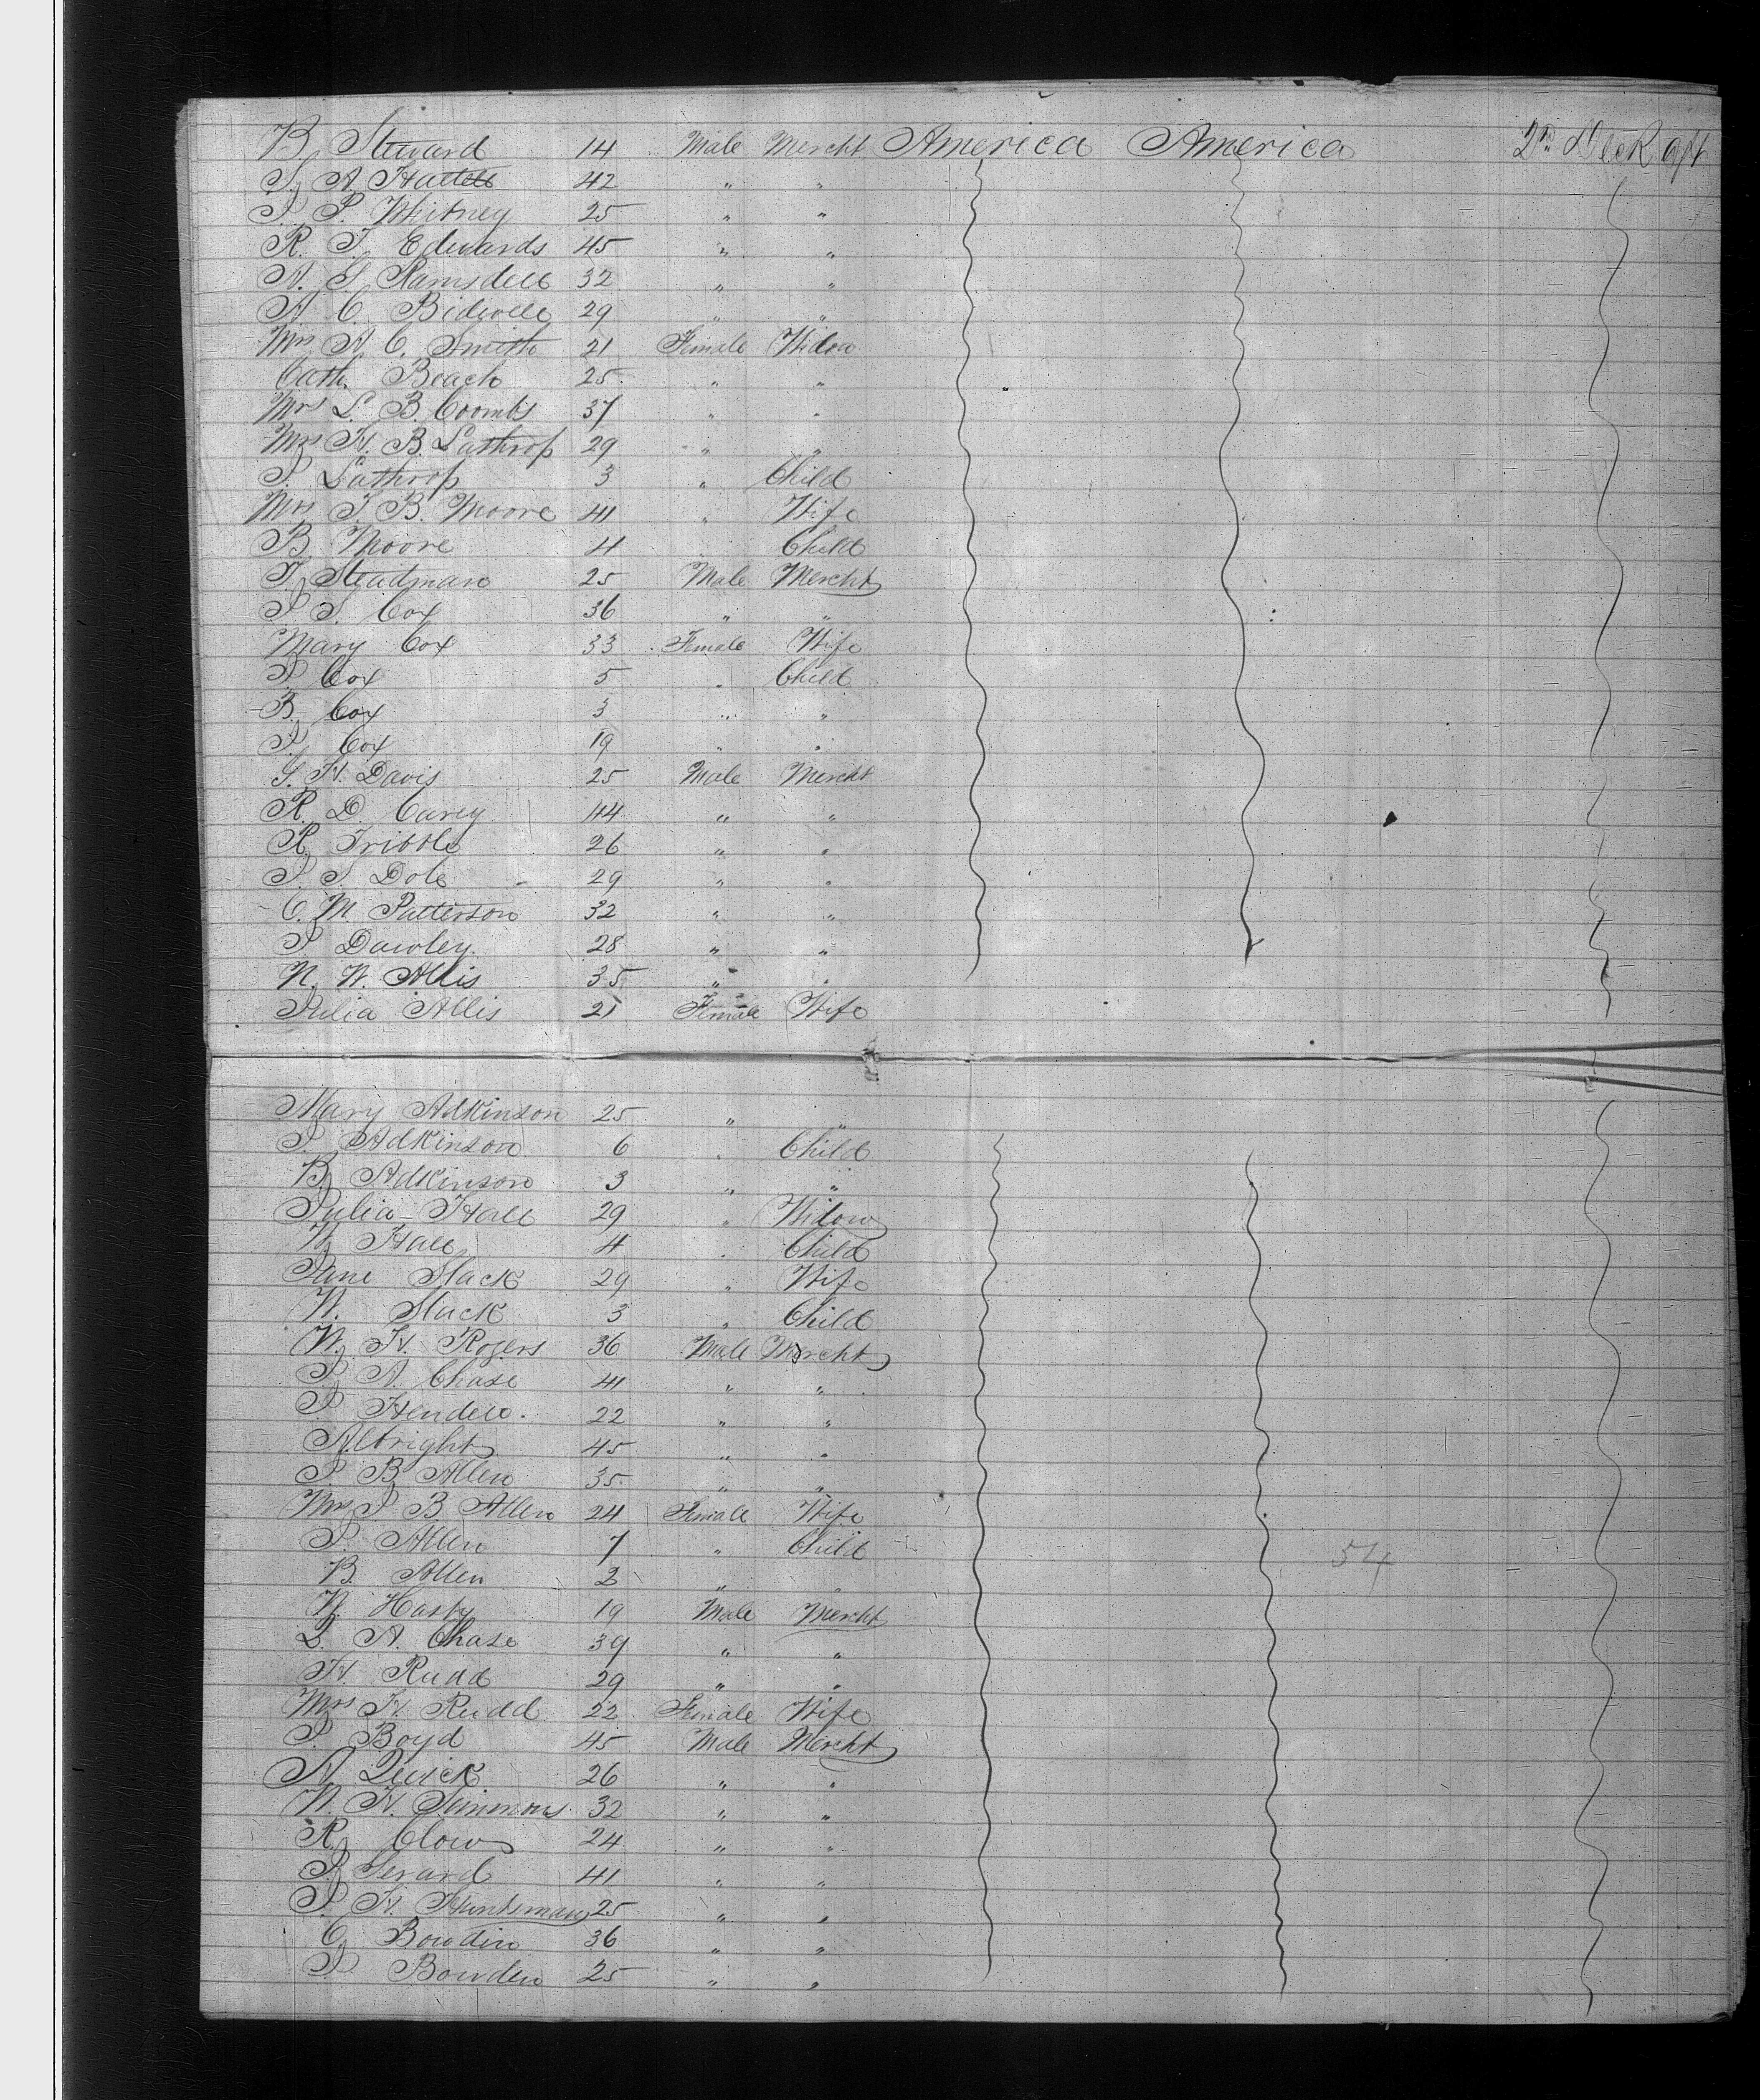 B. Steward 14 Male Mercht America America 2nd Deck aft
S. A. Hattele 42 " "
P. P. Whitney 25 " "
R. T. Edwards 45 " "
A. G. Ramsdell 32 " "
A. C. Bidwell 29 " "
Mrs A. C. Smith 21 Female Widow
Cath. Beach 25 " "
Mrs L. B. Coombs 37 " "
Mrs H. B. Lathrop 29 " "
P. Lathrop 3 " Child
Mrs T. B. Moore 41 " Wife
B. Moore 4 " Child
T. Steadman 25 Male Mercht
P. S. Cox 36 " "
Mary Cox 33 Female Wife
P. Cox 5 " Child
B. Cox 3 " "
P. Cox 19 " "
S. H. Davis 25 Male Mercht
R. D. Carey 44 " "
R. Tribble 26 " "
P. S. Dole 29 " "
C. M. Patterson 32 " "
P. Dawley 28 " "
N. W. Allis 35 " "
Julia Allis 21 Female Wife
Mary Adkinson 25 " "
P. Adkinson 6 " Child
B. Adkinson 3 " "
Julia Hall 29 " Widow
W. Hall 4 " Child
Jane Slack 29 " Wife
W. Slack 3 " Child
W. H. Rogers 36 Male Mercht
P. A. Chase 41 " "
P. Hendell 22 " "
Albright 45 " "
P. B. Allen 35 " "
Mrs P. B. Allen 24 Female Wife
P. Allen 7 " Child
B. Allen 2 " " 54
W. Hasty 19 Male Mercht
L. A. Chase 39 " "
H. Rudd 29 " "
Mrs H. Rudd 22 Female Wife
P. Boyd 45 Male Mercht
A. Quick 26 " "
W. H. Simmons 32 " "
R. Clow 24 " "
P. Gerard 41 " "
P. H. Huntsman 25 " "
C. Bowdin 36 " "
P. Bowden 25 " "